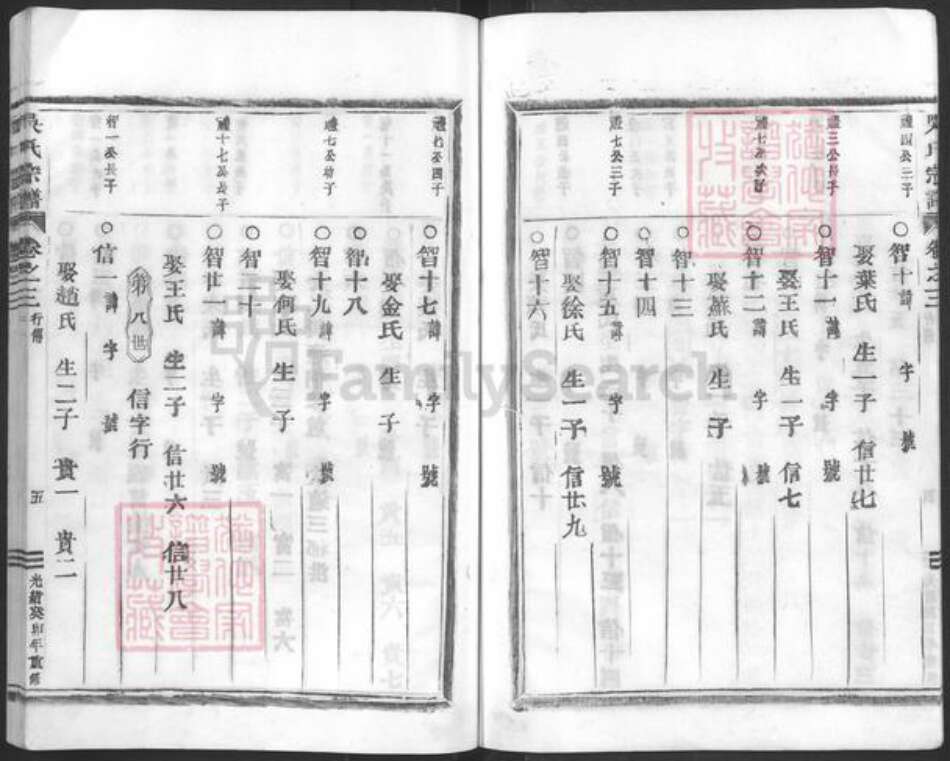 禮四公二子
○智十 諱 字 號
娶葉氏 生一子 信廿七
禮三公長子
○智十一 諱 字 號
娶王氏 生一子 信七
○智十二 諱 字 號
娶蘇氏 生 子
○智十三
○智十四
禮七公三子
○智十五 諱 字 號
娶徐氏 生一子 信廿九
○智十六
○智十七 諱 字 號
娶金氏 生 子
○智十八
禮七公幼子
○智十九 諱 字 號
娶何氏 生 子
○智二十
禮十七公長子
○智廿一 諱 字 號
娶王氏 生二子 信廿六 信廿八
第八世 信字行
智一公長子
○信一 諱 字 號
娶趙氏 生二子 貴一 貴二
氏宗譜 卷之三 行傳 五 光緒癸卯年重修
氏宗譜 卷之三
FamilySearch